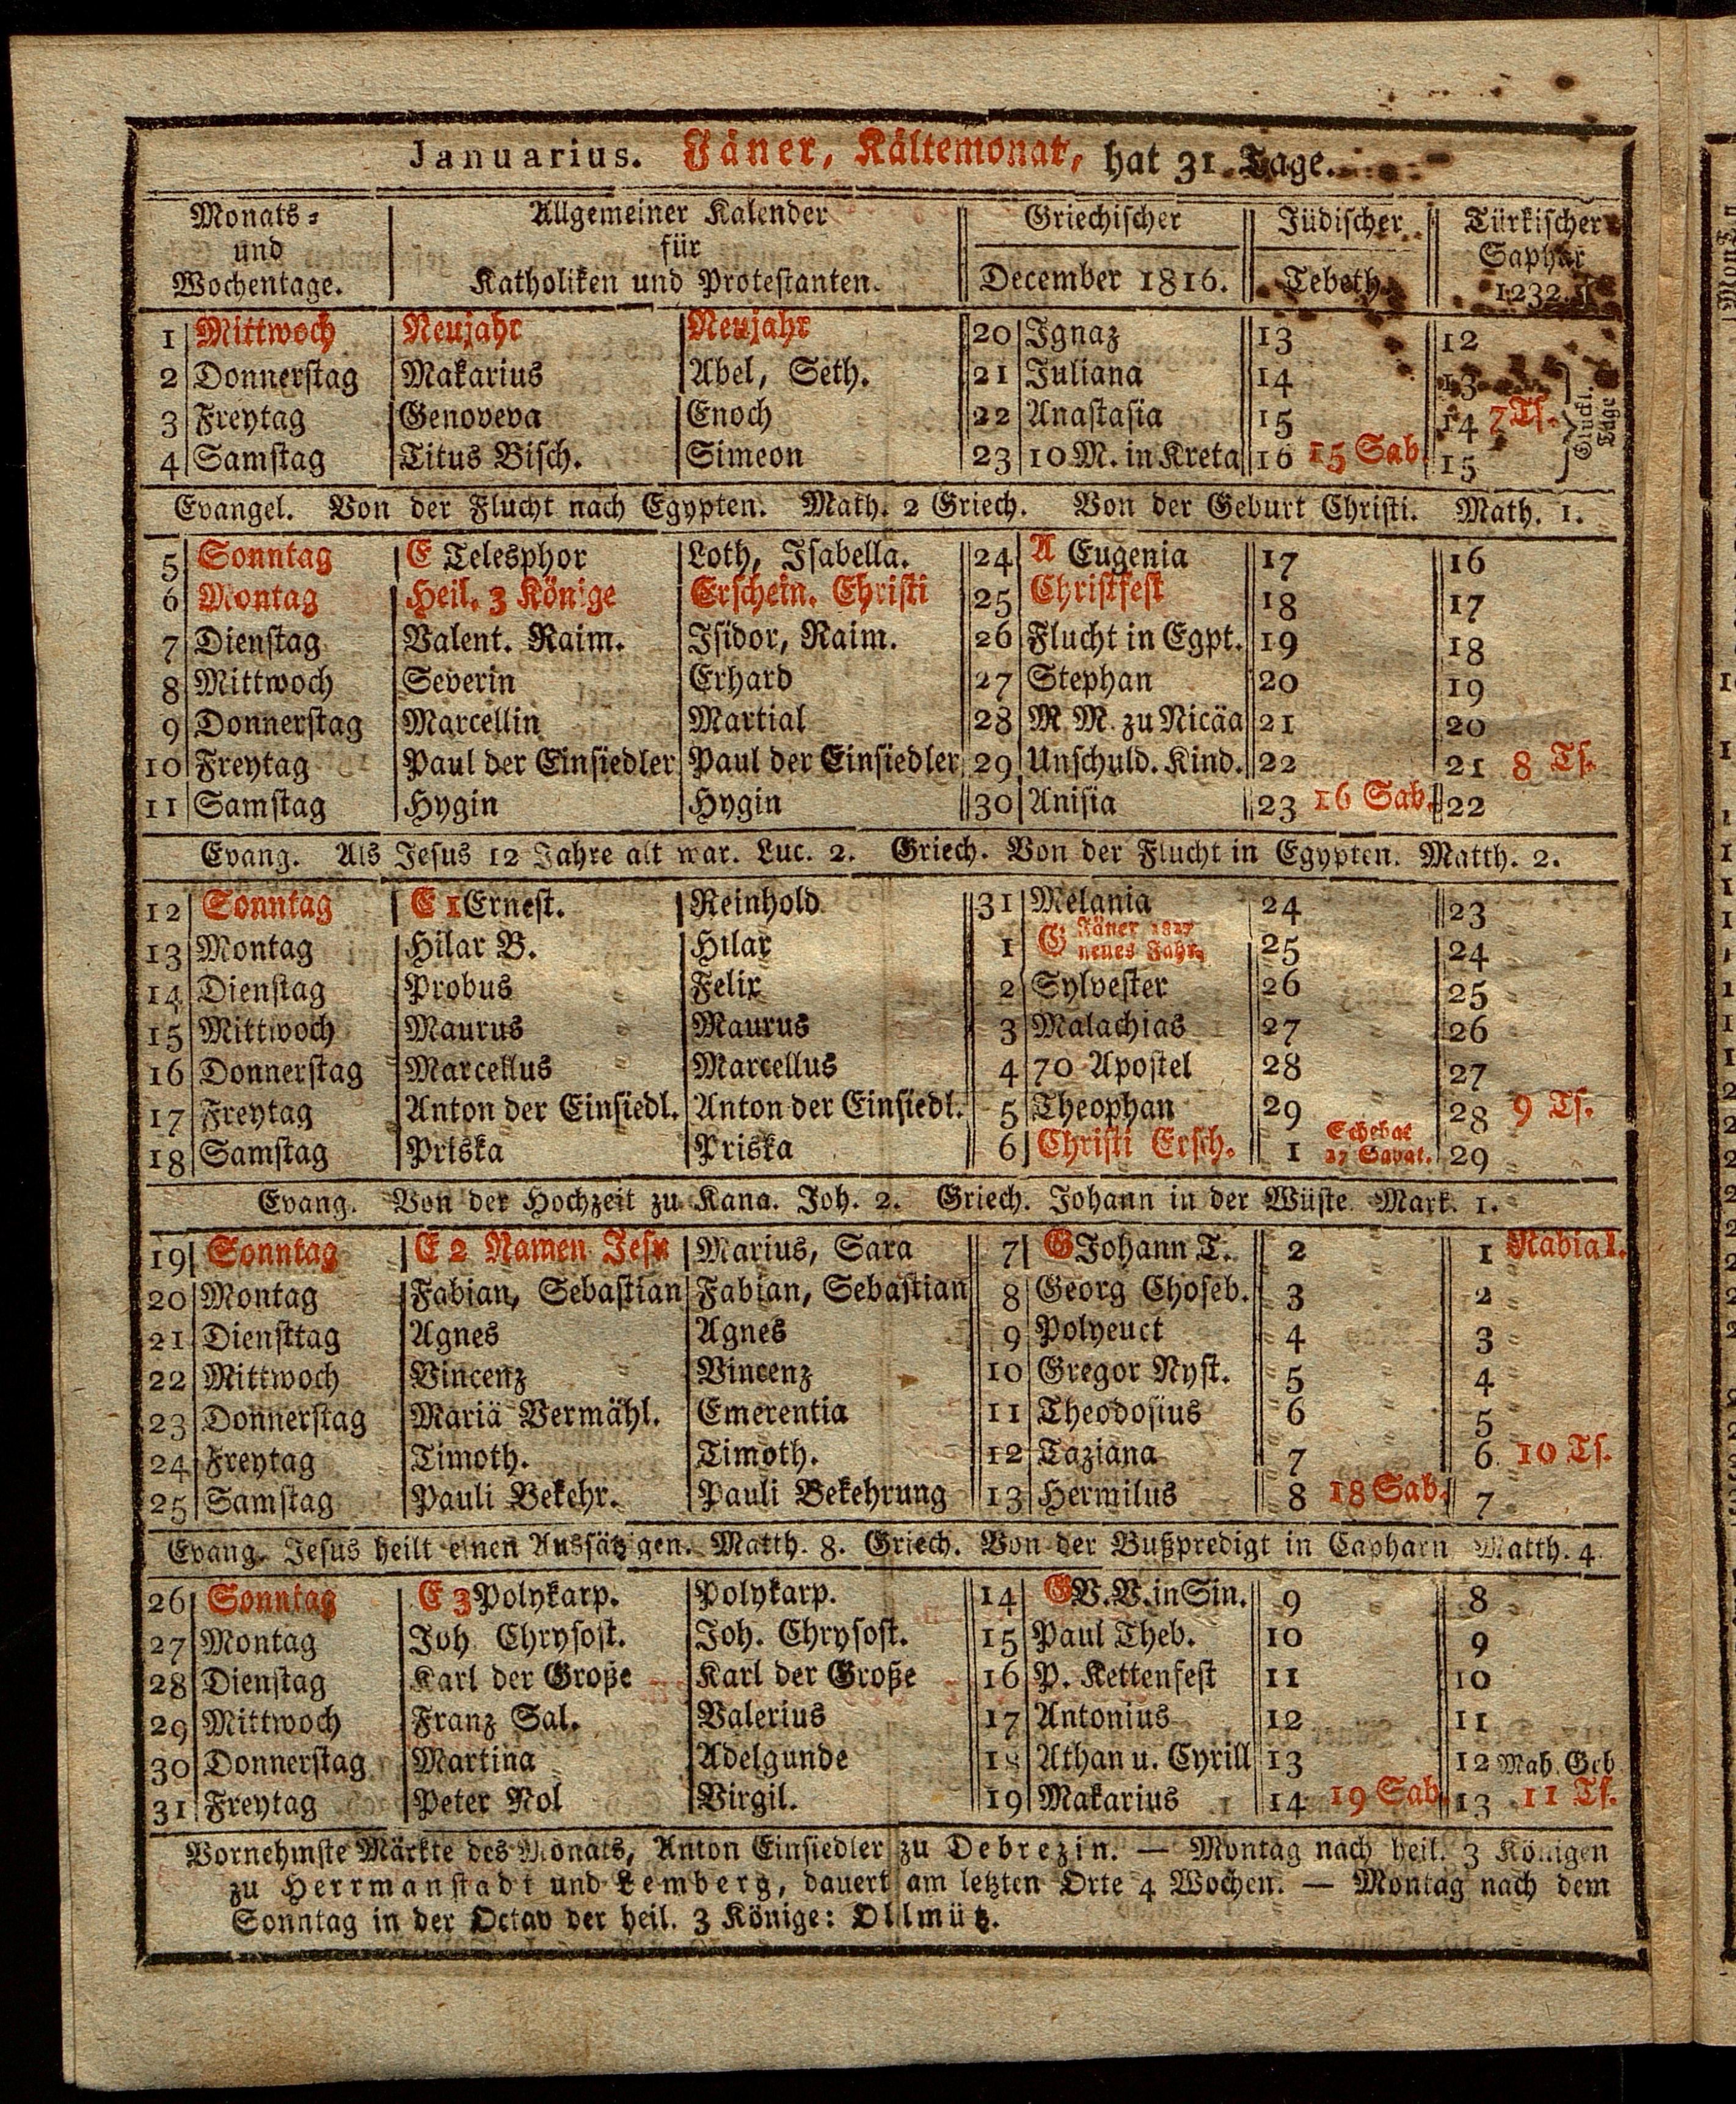 Januarius. Jäner, Kältemonat, hat 31. Tage.
Monats- und Wochentage. Allgemeiner Kalender für Katholiken und Protestanten. Griechischer December 1816. Jüdischer Tebeth Türkischer Saphar 1232.
1 Mittwoch Neujahr Neujahr 20 Ignaz 13 12
2 Donnerstag Makarius Abel, Seth. 21 Juliana 14 13
3 Freytag Genoveva Enoch 22 Anastasia 15 14 7 Ts. Glückl. Tage
4 Samstag Titus Bisch. Simeon 23 10 M. in Kreta 16 15 Sab. 15
Evangel. Von der Flucht nach Egypten. Math. 2 Griech. Von der Geburt Christi. Math. 1.
5 Sonntag E Telesphor Loth, Isabella. 24 A Eugenia 17 16
6 Montag Heil. 3 Könige Erschein. Christi 25 Christfest 18 17
7 Dienstag Valent. Raim. Isidor, Raim. 26 Flucht in Egpt. 19 18
8 Mittwoch Severin Erhard 27 Stephan 20 19
9 Donnerstag Marcellin Martial 28 M. M. zu Nicäa 21 20
10 Freytag Paul der Einsiedler Paul der Einsiedler 29 Unschuld. Kind. 22 21 8 Ts.
11 Samstag Hygin Hygin 30 Anisia 23 16 Sab. 22
Evang. Als Jesus 12 Jahre alt war. Luc. 2. Griech. Von der Flucht in Egypten. Matth. 2.
12 Sonntag E 1 Ernest. Reinhold 31 Melania 24 23
13 Montag Hilar B. Hilar 1 G Jäner 1817 neues Jahr. 25 24
14 Dienstag Probus Felix 2 Sylvester 26 25
15 Mittwoch Maurus Maurus 3 Malachias 27 26
16 Donnerstag Marcellus Marcellus 4 70 Apostel 28 27
17 Freytag Anton der Einsiedl. Anton der Einsiedl. 5 Theophan 29 28 9 Ts.
18 Samstag Priska Priska 6 Christi Ersch. 1 Schebat 17 Sabat. 29
Evang. Von der Hochzeit zu Kana. Joh. 2. Griech. Johann in der Wüste. Mark. 1.
19 Sonntag E 2 Namen Jesu Marius, Sara 7 G Johann T. 2 1 Rabia I.
20 Montag Fabian, Sebastian Fabian, Sebastian 8 Georg Choseb. 3 2
21 Diensttag Agnes Agnes 9 Polyeuct 4 3
22 Mittwoch Vincenz Vincenz 10 Gregor Nyst. 5 4
23 Donnerstag Mariä Vermähl. Emerentia 11 Theodosius 6 5
24 Freytag Timoth. Timoth. 12 Taziana 7 6 10 Ts.
25 Samstag Pauli Bekehr. Pauli Bekehrung 13 Hermilus 8 18 Sab. 7
Evang. Jesus heilt einen Aussätzigen. Matth. 8. Griech. Von der Bußpredigt in Capharn Matth. 4.
26 Sonntag E 3 Polykarp. Polykarp. 14 G V. V. in Sin. 9 8
27 Montag Joh Chrysost. Joh. Chrysost. 15 Paul Theb. 10 9
28 Dienstag Karl der Große Karl der Große 16 P. Kettenfest 11 10
29 Mittwoch Franz Sal. Valerius 17 Antonius 12 11
30 Donnerstag Martina Adelgunde 18 Athan u. Cyrill 13 12 Mah. Geb
31 Freytag Peter Nol Virgil. 19 Makarius 14 19 Sab. 13 11 Ts.
Vornehmste Märkte des Monats, Anton Einsiedler zu Debrezin. — Montag nach heil. 3 Königen
zu Herrmanstadt und Lemberg, dauert am letzten Orte 4 Wochen. — Montag nach dem
Sonntag in der Octav der heil. 3 Könige: Ollmütz.